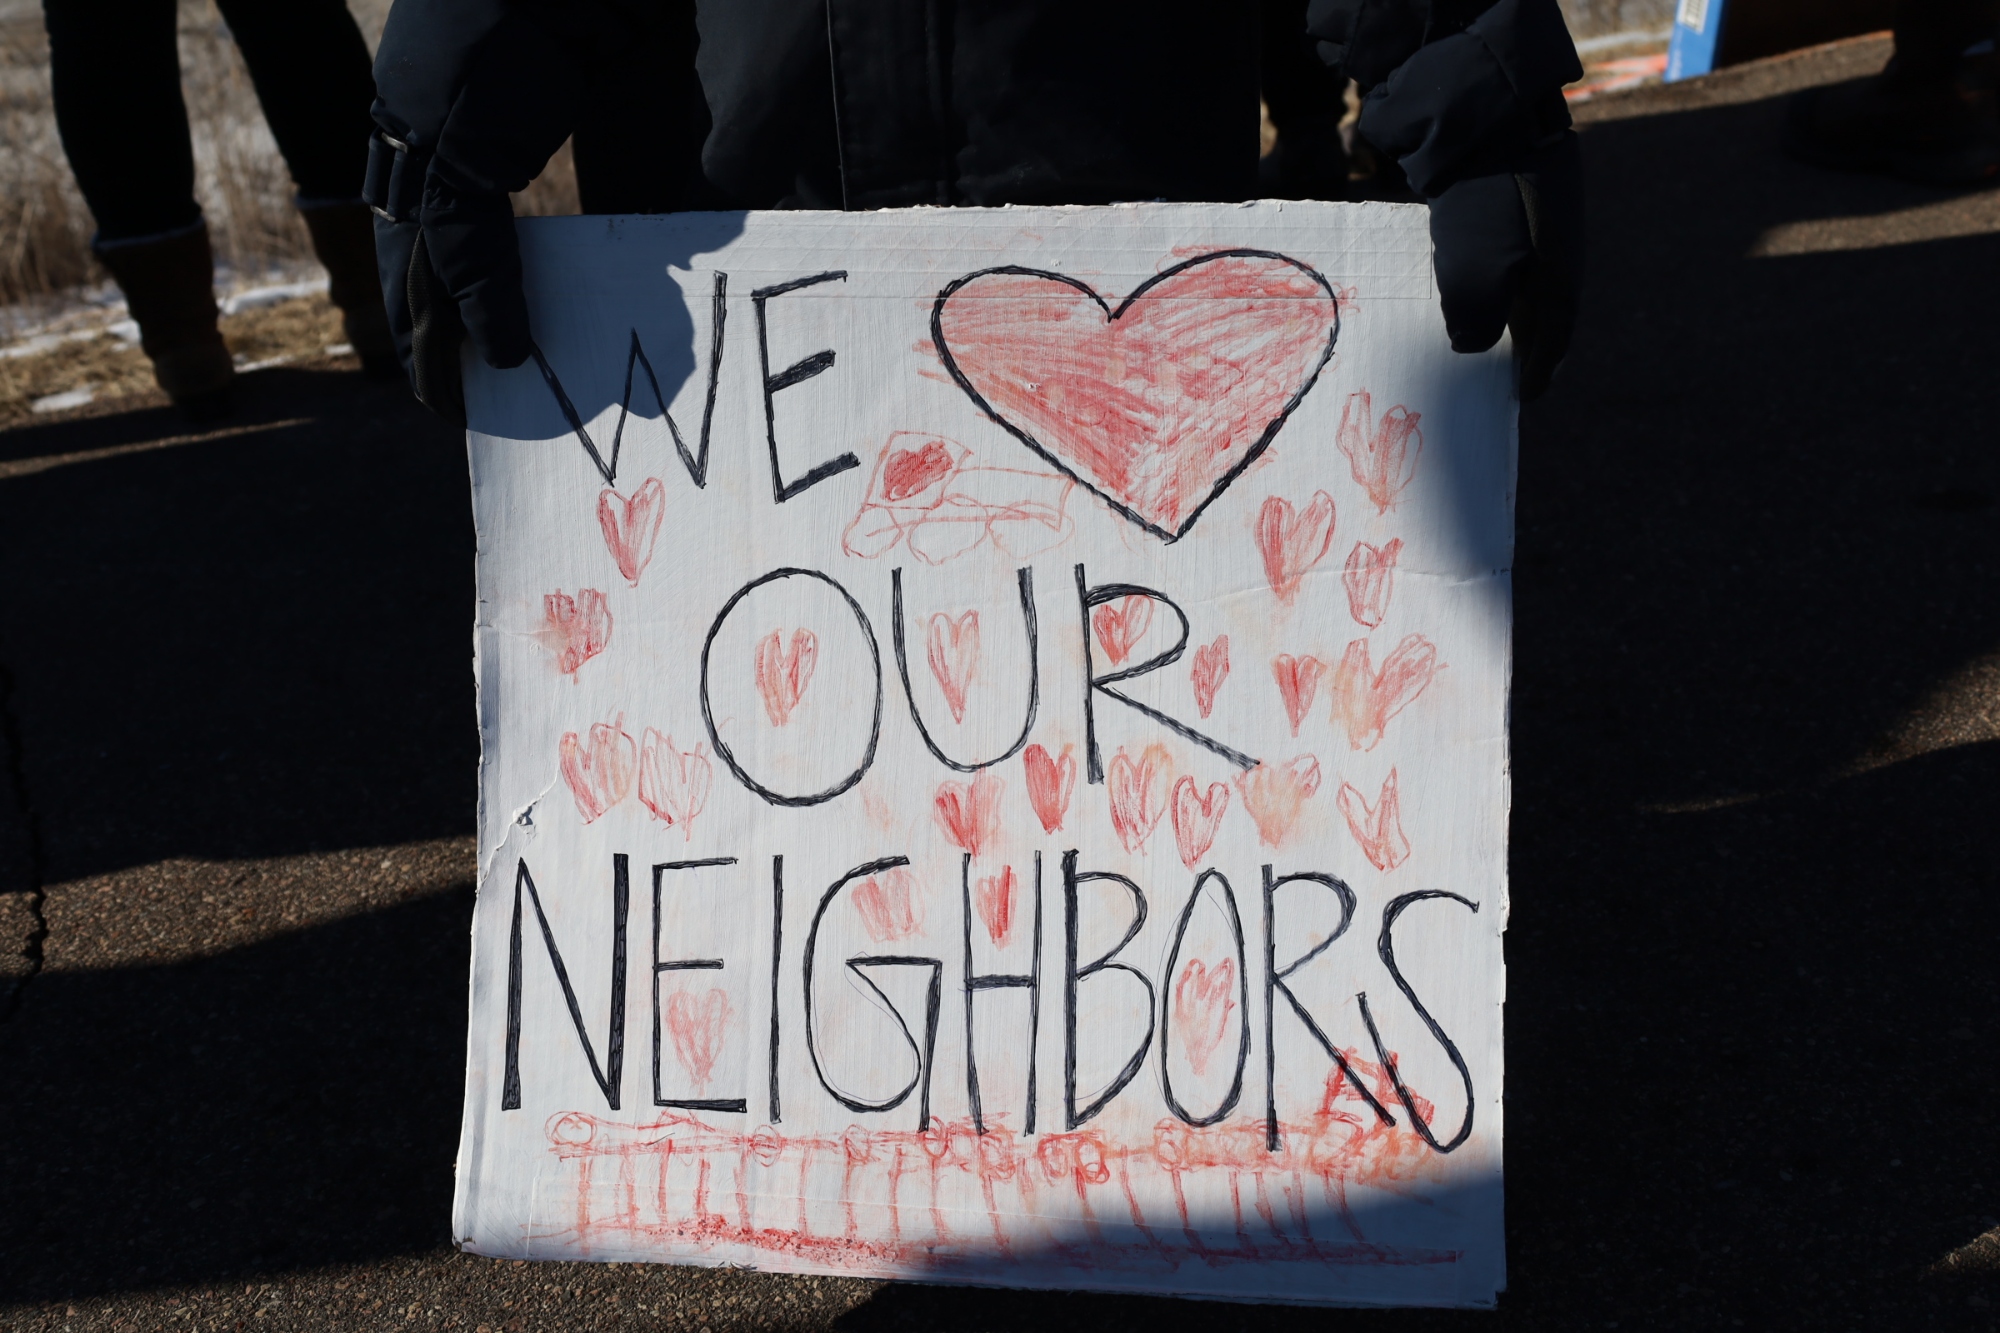 WE ❤
OUR
NEIGHBORS